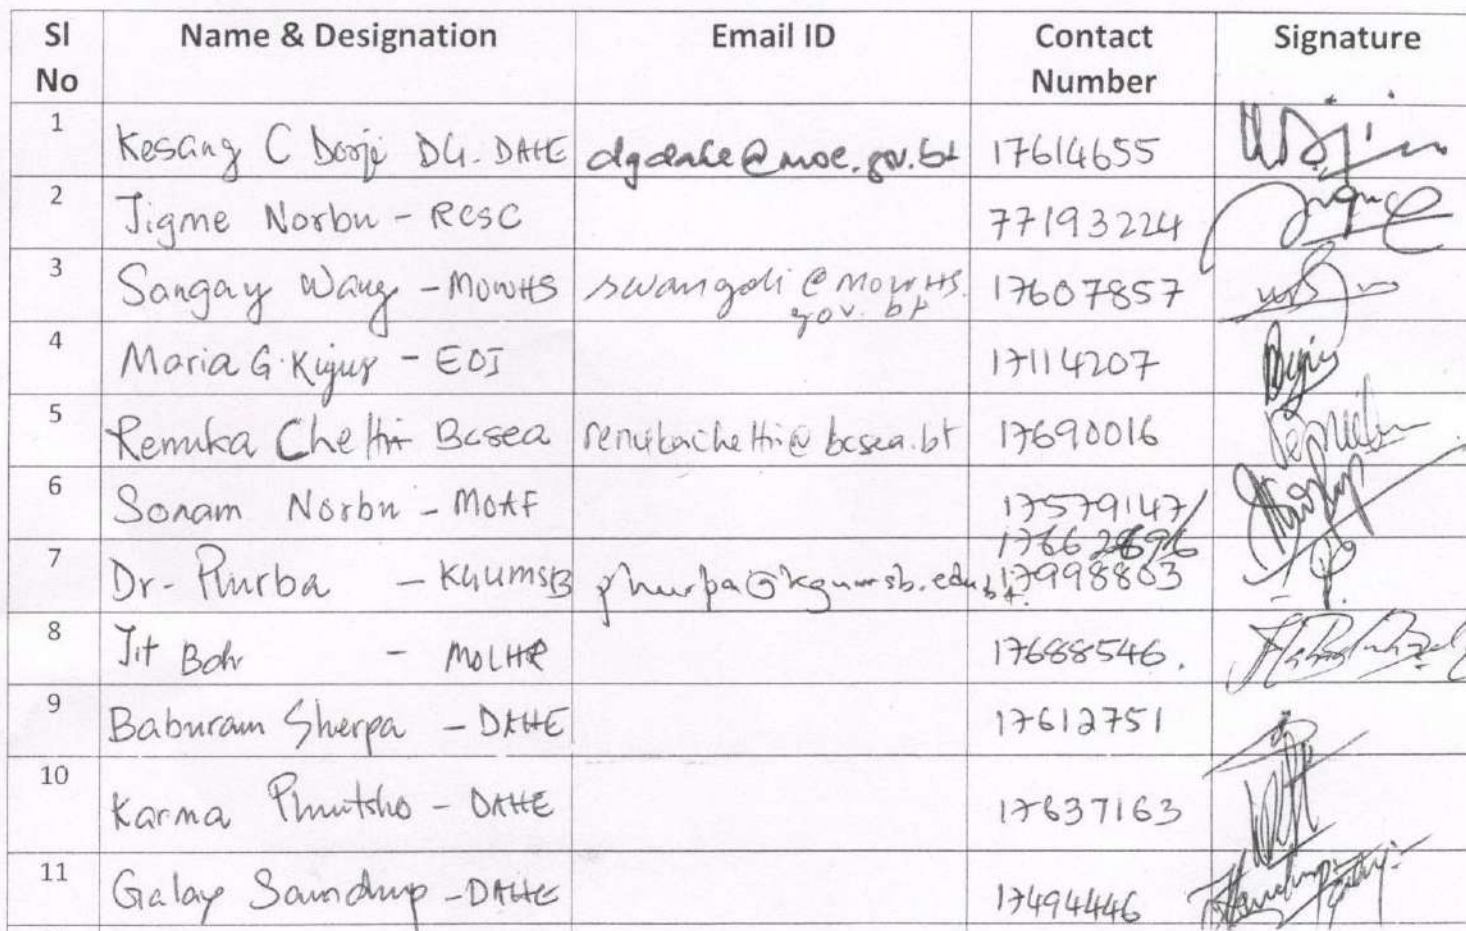 Sl No Name & Designation Email ID Contact Number Signature
1 Kesang C Dorji DG-DAHE dgdahe@moe.gov.bt 17614655
2 Jigme Norbu - RCSC 77193224
3 Sangay Wang - MOWHS @MOWHS. 17607857
gov.bt
4 Maria G. - EDI 17114207
5 Renuka Chettri Bcsea renukachettri@bcsea.bt 17690016
6 Sonam Norbu - MOAF 17579147/
7 Dr. Phurba - KGUMSB phurba@kgumsb.edu.bt. 17998803
8 Jit Bdr - MOLHR 17688546.
9 Baburam Sherpa - DAHE 17612751
10 Karma Phuntsho - DAHE 17637163
11 Galay Samdrup - DAHE 17494446